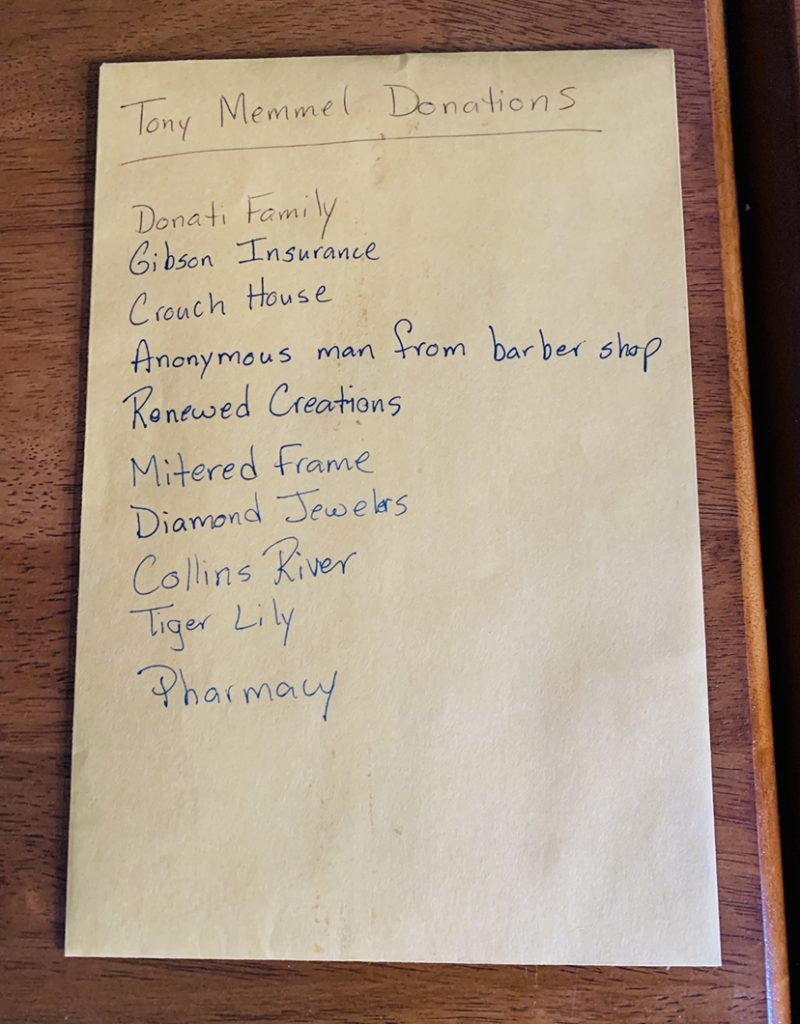 Tony Memmel Donations
Donati Family
Gibson Insurance
Crouch House
Anonymous man from barber shop
Renewed Creations
Mitered Frame
Diamond Jewelers
Collins River
Tiger Lily
Pharmacy